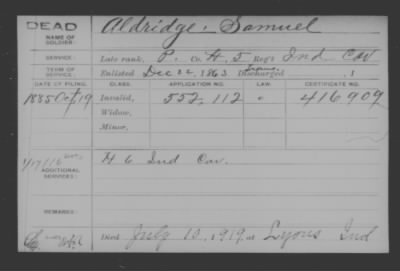 DEAD
NAME OF SOLDIER: Aldridge, Samuel
SERVICE: Late rank, P. Co. H, 5 Reg't Ind Cav
TERM OF SERVICE: Enlisted Dec 1863 Discharged , 1
DATE OF FILING. CLASS. APPLICATION NO. LAW. CERTIFICATE NO.
1885 Oct 19 Invalid, 552,112 " 416909
Widow,
Minor,
ADDITIONAL SERVICES: H 6 Ind Cav.
REMARKS:
Died July 10, 1919, at Lyons Ind